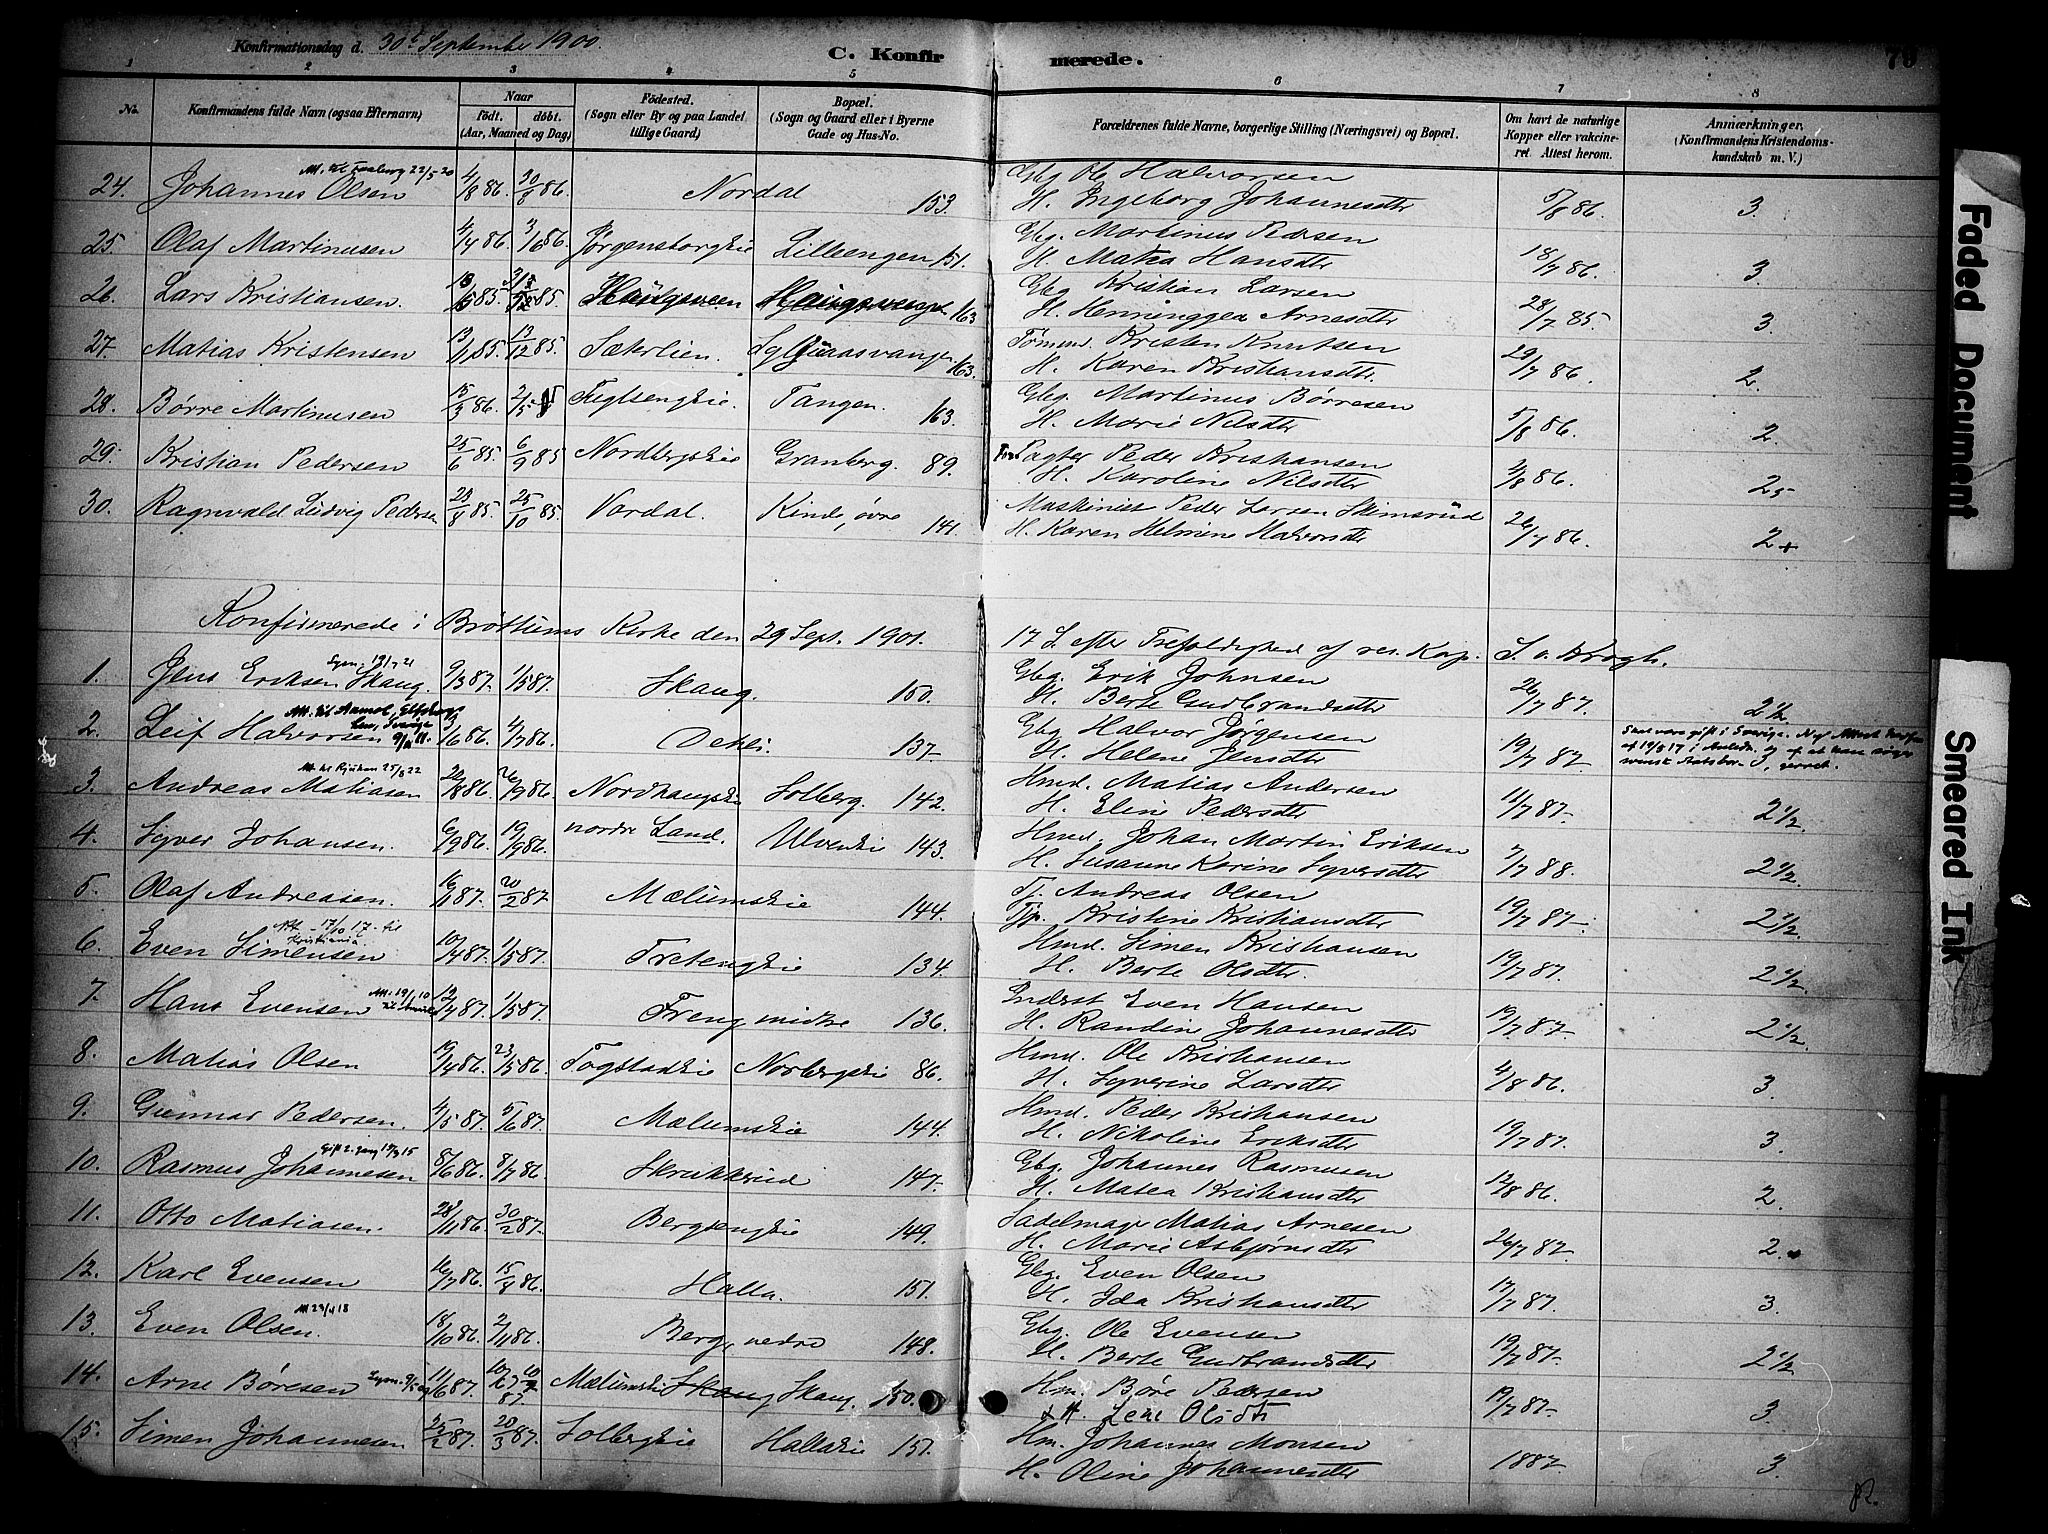 Konfirmationsdag d. 30te September 1900.
C. Konfirmerede.
70
1 2 3 4 5 6 7 8
No. Konfirmandens fulde Navn (ogsaa Efternavn) Naar født. døbt. (Aar, Maaned og Dag) Fødested. (Sogn eller By og paa Landet tillige Gaard) Bopæl. (Sogn og Gaard eller i Byerne Gade og Hus-No. Forældrenes fulde Navne, borgerlige Stilling (Næringsvei) og Bopæl. Om havt de naturlige Kopper eller vakcineret Attest herom. Anmærkninger. (Konfirmandens Kristendomskundskab m. V.)
Att. til Faaberg 22/5 20
24. Johannes Olsen 4/8 86. 30/8 86. Nordal 153. Gbg Ole Halvorsen
H. Ingeborg Johannesdtr 5/8 86. 3.
25. Olaf Martinusen 4/4 86. 3/6 86. Jørgensborgeie Lilleengen 151. Gbg. Martinus Pedersen
H. Matea Hansdtr 18/7 86. 3
26. Lars Kristiansen 85. 85. Haugsveen 163 Gbg Kristian Larsen
H. Henninggea Arnesdtr 28/7 85. 3.
27. Matias Kristensen 13/11 85. 13/12 85. Sæterlien. 163. Tømmerm. Kristen Knutsen
H. Karen Kristiansdtr. 29/7 86. 2.
28. Børre Martinusen 15/3 86. 2/5 Tangen. 163. Gbg. Martinus Børresen
H. Marie Nilsdtr 5/8 86. 2.
29. Kristian Pedersen 25/6 85. 6/9 85 Nordbergseie Granberg. 89. Peder Kristiansen
H. Karoline Nilsdtr 86. 2
30. Ragnvald Ludvig Pedersen 23/8 85. 25/10 85. Nordal. Kinde, øvre 141. Maskinist Peder Larsen Skimsrud
H. Karen Helmine Halvorsdtr 26/7 86. 2+
Konfirmerede i Brøttums Kirke den 29 Sept. 1901. 17 S. efter Trefoldighed af res. Kap. S. v. Krogh.
1. Jens Eriksen Skaug. 9/3 87. 1/5 87. Skaug. 150. Gbg. Erik Johnsen
H. Berte Gudbrandsdtr 26/7 87. 2 1/2
2. Leif Halvorsen 86. 4/7 86. Dehli. 137. Gbg Halvor Jørgensen
H. Helene Jensdtr 19/7 87. 3,
Att. til Rjukan 25/8 22
3. Andreas Matiasen 20/8 86. 26/9 86. Nordhaugseie Solberg. 142. Hmd. Matias Andersen
H. Eline Pedersdtr 11/7 87. 2 1/2.
4. Syver Johansen. 6/9 86. 19/9 86. nordre Land. Ulveneie 143. Hmd. Johan Martin Eriksen
H. Susanne Karine Syversdtr 7/7 88. 2 1/2.
5. Olaf Andreasen. 16/1 87. 20/2 87 Mælumseie 144. Tj. Andreas Olsen
Tjp. Kristine Kristiansdtr 19/7 87. 2 1/2.
Att. 17/10 17 til Kristiania.
6. Even Simensen 10/4 87. 1/5 87. Fretengseie 134. Hmd. Simen Kristiansen
H. Berte Olsdtr. 19/7 87. 2 1/2.
7. Hans Evensen 12/4 87. 1/5 87. Freng midtre 136. Inderst Even Hansen
H. Randine Johannesdtr 19/7 87. 2 1/2.
8. Matias Olsen 19/4 86. 23/5 86. Fogstadeie Norbergseie 86. Hmd. Ole Kristiansen
H. Syverine Larsdtr 4/8 86. 3.
9. Gunnar Pedersen. 4/5 87. 5/6 87. Mælumseie 144. Hmd. Peder Kristiansen
H. Nikoline Eriksdtr 19/7 87. 3.
10. Rasmus Johannesen 8/6 86. 8/7 86 Skrukkrud 147. Gbg. Johannes Rasmusen
H. Matea Kristiansdtr 12/8 86. 2.
11. Otto Matiasen. 28/11 86. 30/2 87. Bergsengeie 149. Sadelmager Matias Arnesen
H. Marie Asbjørnsdtr 26/7 87. 2.
12. Karl Evensen 16/7 86. 15/8 86. Halla. 151. Gbg. Even Olsen
H. Ida Kristiansdtr 17/7 87. 3.
Att 23/4 18
13. Even Olsen. 18/10 86. 2/11 86. Berg, nedre 148. Gbg. Ole Evensen
H. Berte Gudbrandsdtr 19/7 87. 2 1/2
14. Arne Børesen 11/6 87. 87. Mælumseie Skaug Skaug. 150. Hm. Børe Pedersen
H. Lene Olsdtr 19/7 87. 3.
15. Simen Johannesen 25/2 87. 20/3 87. Solbergseie Hallaeie 151. Hm. Johannes Monsen
H. Oline Johannesdtr 1887. 3.
Faded Document
Smeared Ink